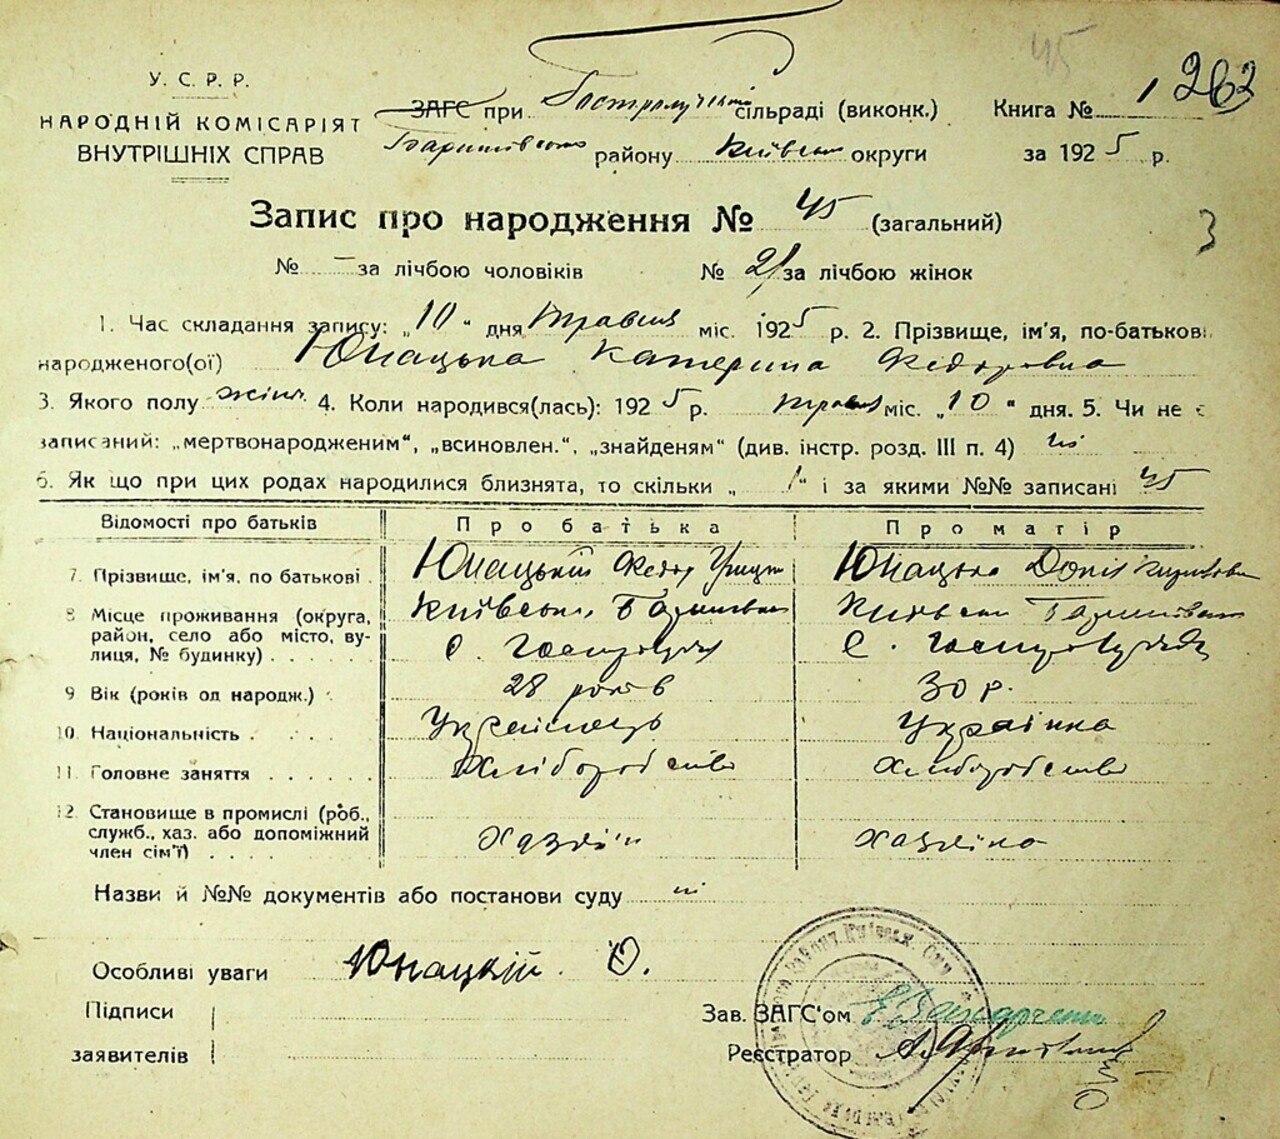 45
У. С. Р. Р.
НАРОДНІЙ КОМІСАРІЯТ
ВНУТРІШНІХ СПРАВ
ЗАГС при сільраді (виконк.) Книга № 1 262
району Київськ округи за 1925 р.
Запис про народження № 45 (загальний)
3
№ – за лічбою чоловіків № 21 за лічбою жінок
1. Час складання запису: „10“ дня травня міс. 1925 р. 2. Прізвище, ім'я, по-батькові
народженого(ої) Юнацька Катерина Федоровна
3. Якого полу жін. 4. Коли народився(лась): 1925 р. травня міс. „10“ дня. 5. Чи не є
записаний: „мертвонародженим“, „всиновлен.“, „знайденям“ (див. інстр. розд. III п. 4) ні
6. Як що при цих родах народилися близнята, то скільки „1“ і за якими №№ записані 45
Відомості про батьків
Про батька
Про матір
7. Прізвище, ім'я, по батькові
Юнацький Федор
Юнацька
8 Місце проживання (округа,
район, село або місто, ву-
лиця, № будинку)
Київськ
с.
Київськ
с.
9 Вік (років од народж.)
28 років
30 р.
10. Національність
Українець
Українка
11. Головне заняття
Хліборобство
Хліборобство
12. Становище в промислі (роб.,
служб., хаз. або допоміжний
член сім'ї)
Хазяїн
Хазяїка
Назви й №№ документів або постанови суду ні
Особливі уваги Юнацкій О.
Підписи
заявителів
Зав. ЗАГС'ом
Реєстратор